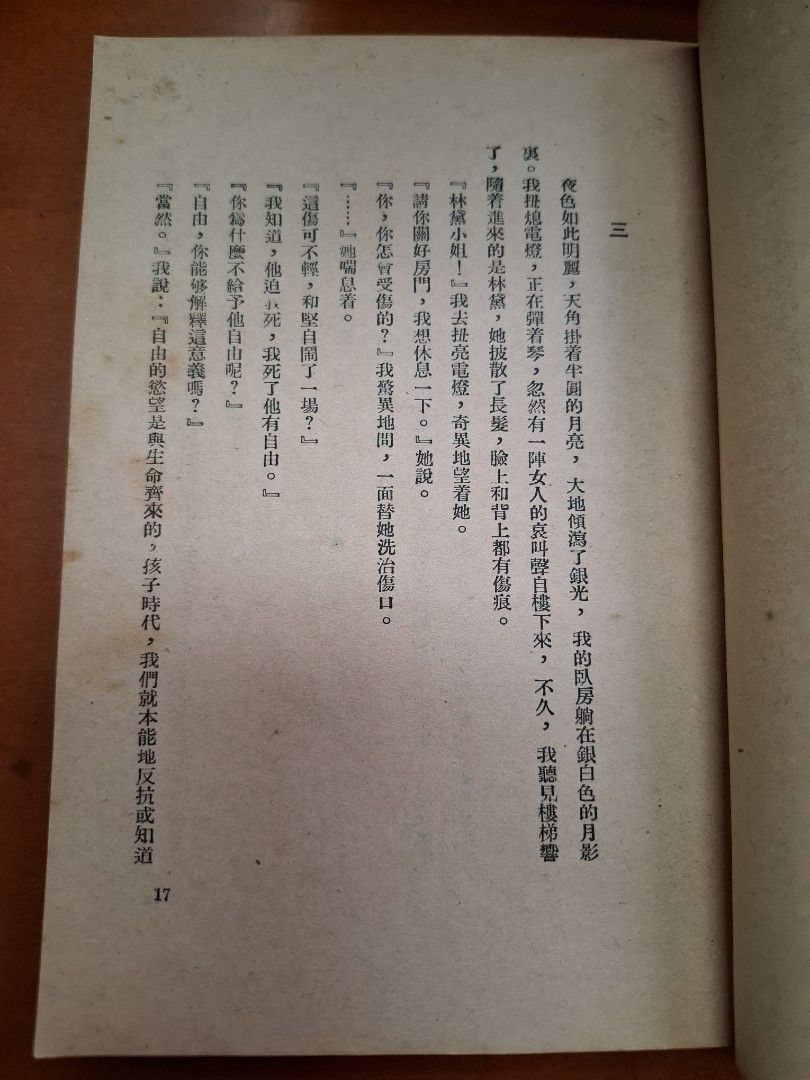 三
夜色如此明麗，天角掛着半圓的月亮，大地傾瀉了銀光，我的臥房躺在銀白色的月影
裏。我扭熄電燈，正在彈着琴，忽然有一陣女人的哀叫聲自樓下來，不久，我聽見樓梯響
了，隨着進來的是林黛，她披散了長髮，臉上和背上都有傷痕。
『林黛小姐！』我去扭亮電燈，奇異地望着她。
『請你關好房門，我想休息一下。』她說。
『你，你怎會受傷的？』我驚異地問，一面替她洗治傷口。
『……』她喘息着。
『這傷可不輕，和堅自鬧了一場？』
『我知道，他迫我死，我死了他有自由。』
『你爲什麼不給予他自由呢？』
『自由，你能够解釋這意義嗎？』
『當然。』我說：『自由的慾望是與生命齊來的，孩子時代，我們就本能地反抗或知道
17